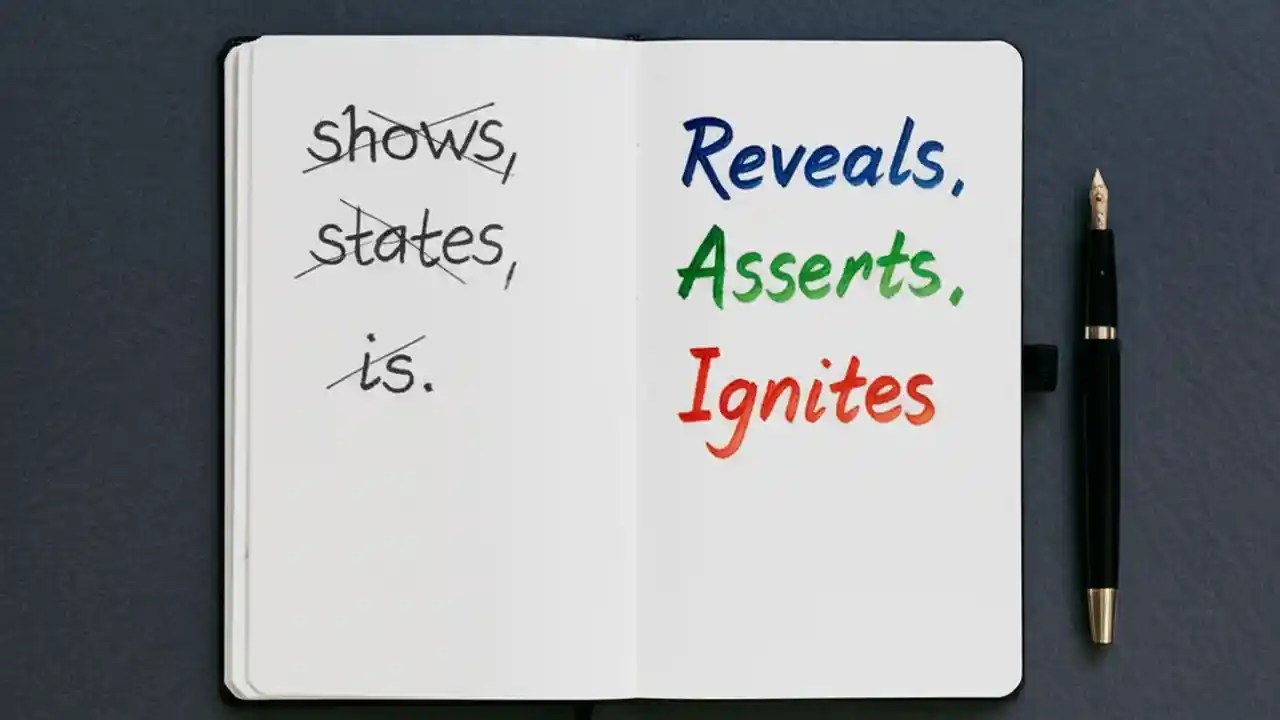 shows,
states,
is.
Reveals,
Asserts,
Ignites